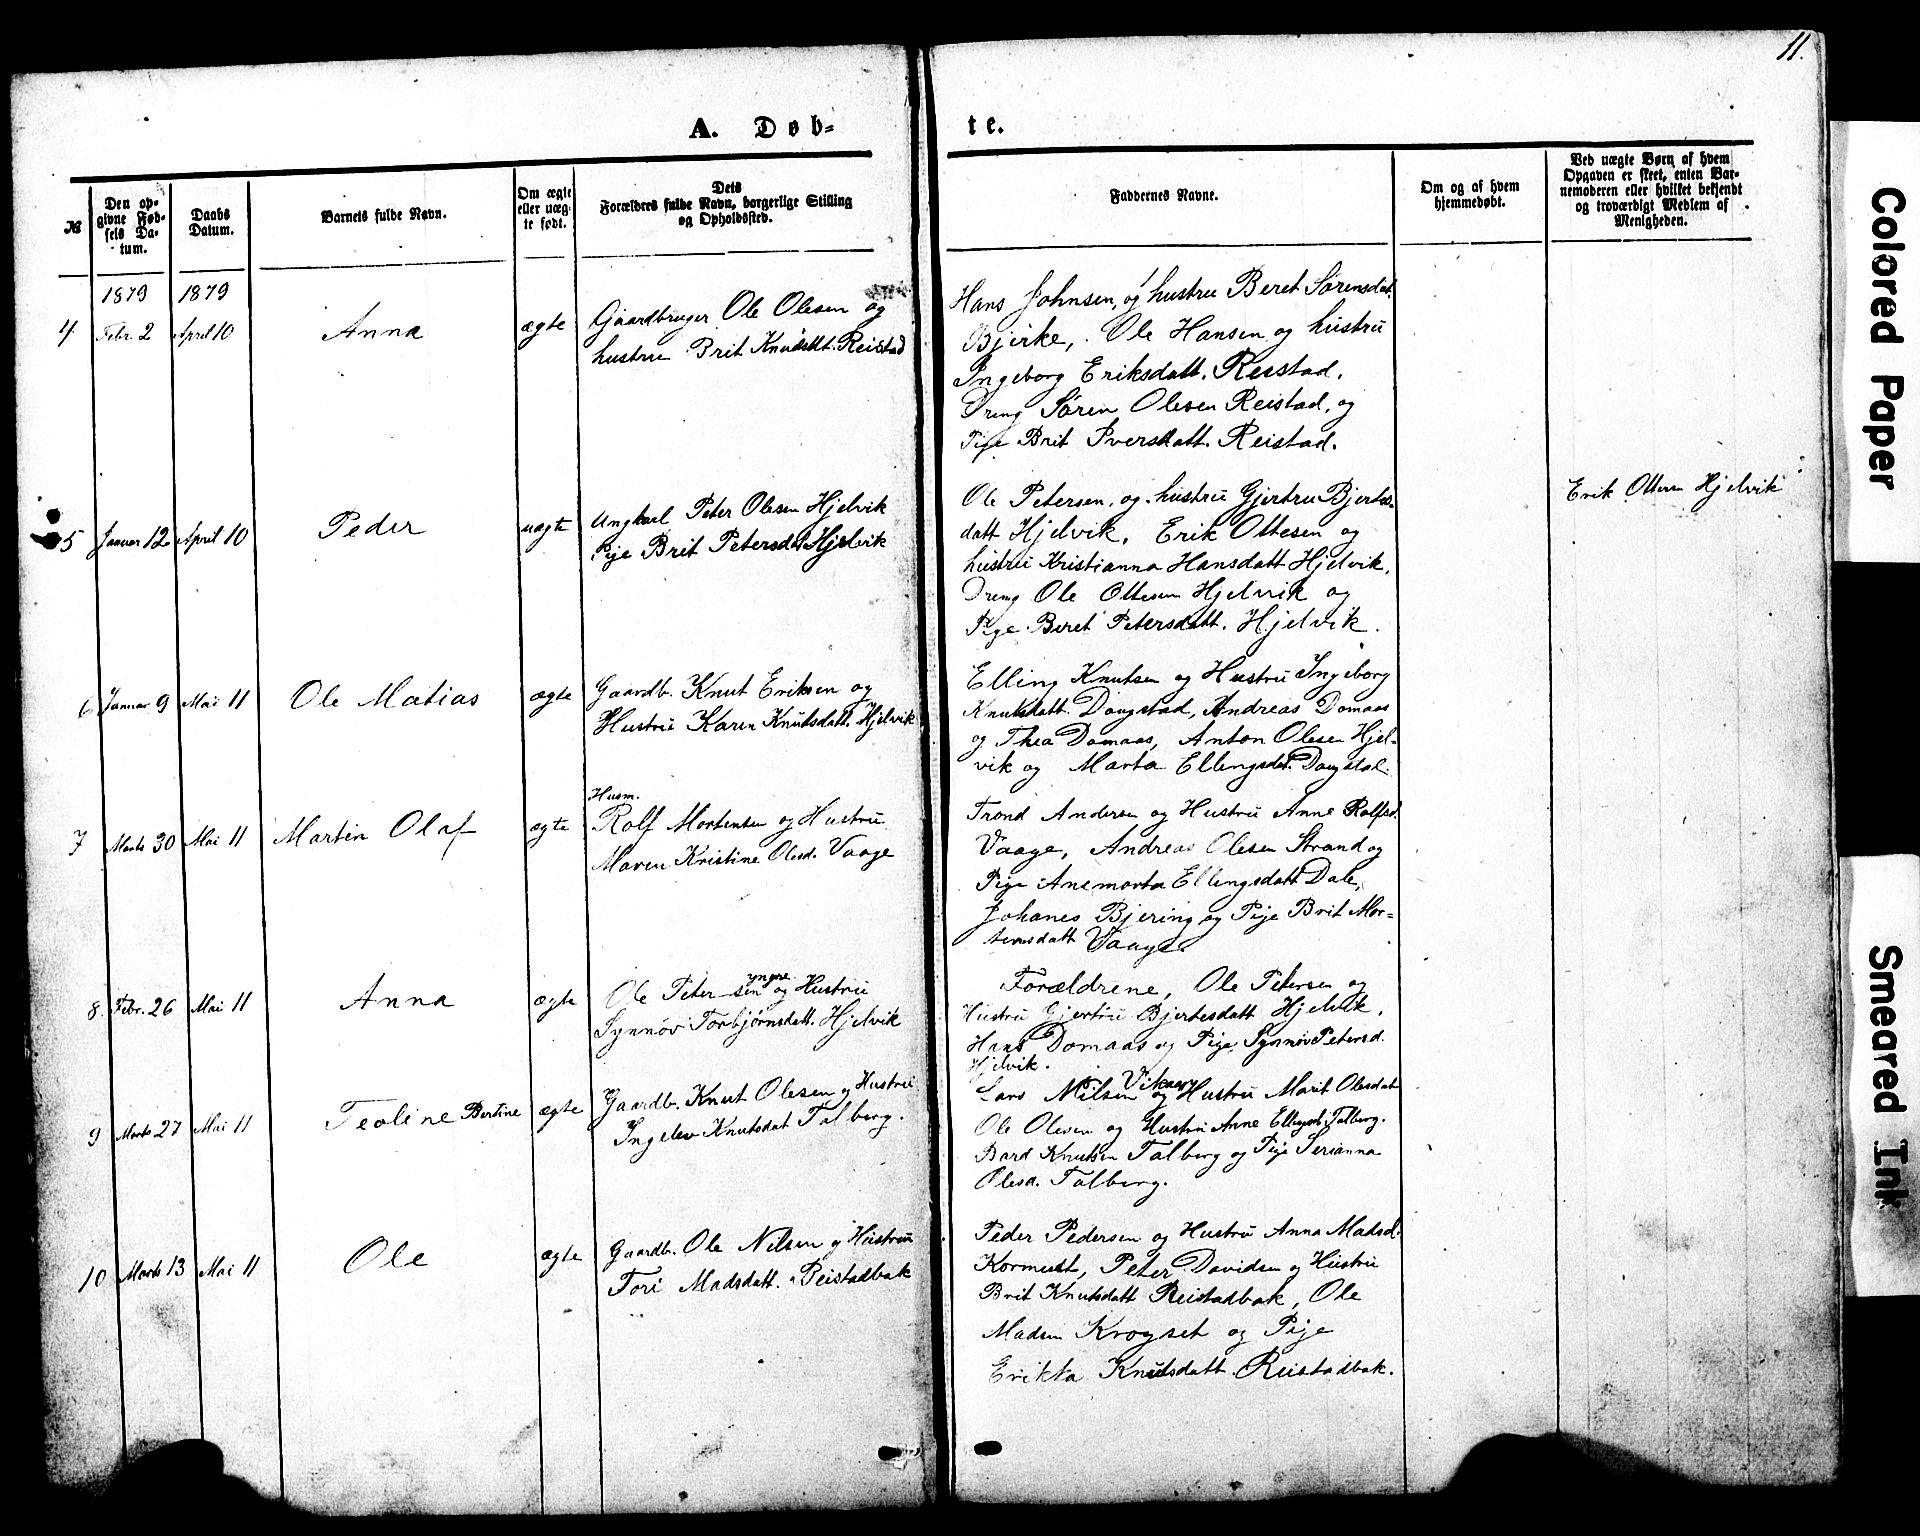 11.
A. Døb-
te.
№
Den op-
givne Fød-
sels Da-
tum.
Daabs
Datum.
Barnets fulde Navn.
Om ægte
eller uæg-
te født.
Dets
Forældres fulde Navn, borgerlige Stilling
og Opholdssted.
Faddernes Navne.
Om og af hvem
hjemmedøbt.
Ved uægte Børn af hvem
Opgaven er skeet, enten Bar-
nemoderen eller hvilket bekjendt
og troværdigt Medlem af
Menigheden.
1879 1879
4 Febr. 2 April 10 Anna ægte
Gaardbruger Ole Olesen og
hustru Brit Knudsdtt. Reistad
Hans Johnsen, og hustru Beret Sørensdat.
Bjerke, Ole Hansen og hustru
Ingeborg Eriksdatt. Reistad.
Dreng Søren Olesen Reistad, og
Pige Brit Iversdatt. Reistad.
5 Januar 12 April 10 Peder uægte
Ungkarl Peter Olesen Hjelvik
Pige Brit Petersdat Hjelvik
Ole Petersen, og hustru Gjertru Bjertes-
datt Hjelvik, Erik Ottesen og
hustru Kristianna Hansdatt Hjelvik,
Dreng Ole Ottesen Hjelvik og
Pige Beret Petersdatt. Hjelvik.
Erik Ottesen Hjelvik
6 Januar 9 Mai 11 Ole Matias ægte
Gaardb. Knut Eriksen og
Hustru Karen Knutsdatt. Hjelvik
Elling Knutsen og Hustru Ingeborg
Knutsdatt. Dougstad, Andreas Domaas
og Thea Domaas, Anton Olesen Hjel-
vik og Marta Ellingsdat. Dougstad.
7 Marts 30 Mai 11 Martin Olaf ægte
Husm.
Rolf Mortensen og Hustru
Maren Kristine Olesd. Vaage
Trond Andersen og Hustru Anne Rolfsd.
Vaage, Andreas Olesen Strand og
Pige Anemarta Ellingsdatt Dale,
Johanes Bjering og Pije Brit Mor-
tensdatt Vaage.
8. Febr. 26 Mai 11 Anna ægte
yngre
Ole Petersen og Hustru
Synnöv Torbjörnsdatt. Hjelvik
Forældrene, Ole Petersen og
Hustru Gjertru Bjertesdatt Hjelvik,
Hans Domaas og Pige Synnöv Petersd.
Hjelvik.
9 Marts 27 Mai 11 Teoline Bertine ægte
Gaardb. Knut Olesen og Hustru
Ingelev Knutsdat Talberg.
Lars Nilsen Viken og Hustru Marit Olesdat
Ole Olesen og Hustru Anne Ellingsd. Talberg.
Bard Knutsen Talberg og Pije Serianna
Olesd. Talberg.
10 Marts 13 Mai 11 Ole ægte
Gaardb. Ole Nilsen og Hustru
Tori Madsdatt. Reistadbak
Peder Pedersen og Hustru Anna Madsd.
Kormeset, Peter Davidsen og Hustru
Brit Knutsdatt Reistadbak, Ole
Madsen Krogset og Pije
Erikka Knutsdatt Reistadbak.
Colored Paper
Smeared Ink